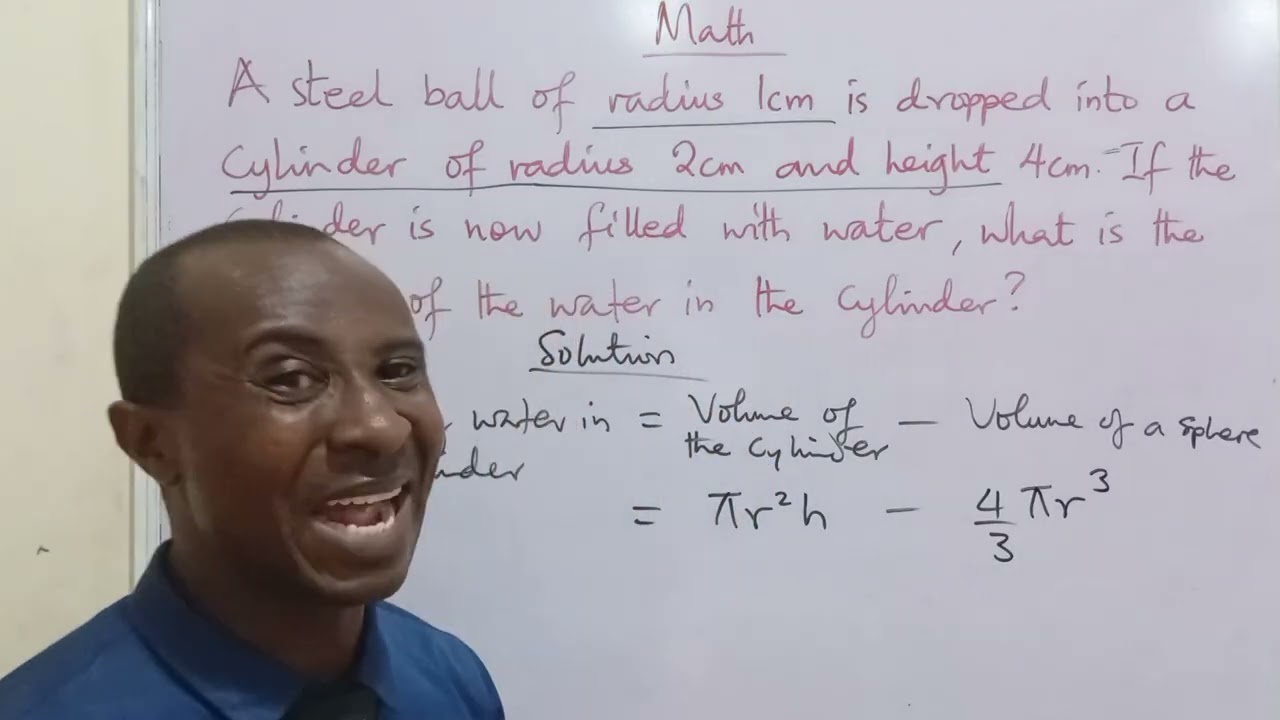 Math
A steel ball of radius 1cm is dropped into a
cylinder of radius 2cm and height 4cm. If the
der is now filled with water, what is the
of the water in the cylinder?
Solution
water in = Volume of the cylinder - Volume of a sphere
nder
= πr²h - 4/3 πr³